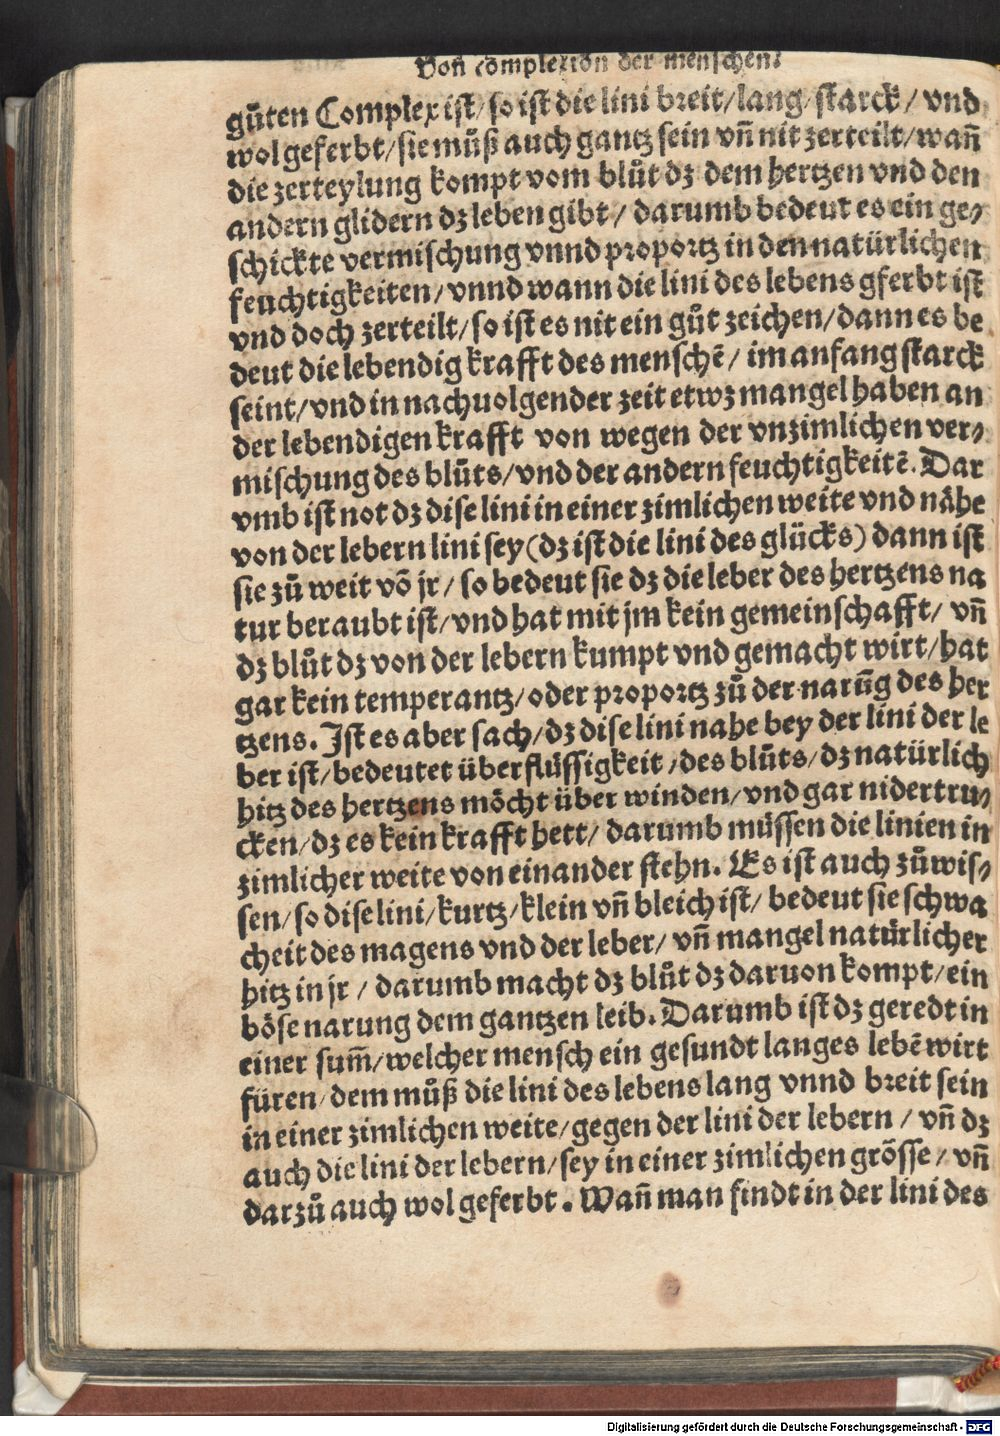 Von complexion der menschen.
gůten Complex ist/so ist die lini breit/lang/starck/vnd
wol geferbt/sie můß auch gantz sein vñ nit zerteilt/wañ
die zerteylung kompt vom blůt dz dem hertzen vnd den
andern glidern dz leben gibt/darumb bedeut es ein ge/
schickte vermischung vnnd proportz in den natürlichen
feuchtigkeiten/vnnd wann die lini des lebens gferbt ist
vnd doch zerteilt/so ist es nit ein gůt zeichen/dann es be
deut die lebendig krafft des menschẽ/im anfang starck
seint/vnd in nachuolgender zeit etwz mangel haben an
der lebendigen krafft von wegen der vnzimlichen ver/
mischung des blůts/vnd der andern feuchtigkeitẽ. Dar
vmb ist not dz dise lini in einer zimlichen weite vnd nähe
von der lebern lini sey(dz ist die lini des glücks)dann ist
sie zů weit võ jr/so bedeut sie dz die leber des hertzens na
tur beraubt ist/vnd hat mit jm kein gemeinschafft/vñ
dz blůt dz von der lebern kumpt vnd gemacht wirt/hat
gar kein temperantz/oder proportz zů der narũg des her
tzens. Ist es aber sach/dz dise lini nahe bey der lini der le
ber ist/bedeutet überflüssigkeit/des blůts/dz natürlich
hitz des hertzens möcht über winden/vnd gar nidertru/
cken/dz es kein krafft hett/darumb müssen die linien in
zimlicher weite von einander stehn. Es ist auch zů wis/
sen/so dise lini/kurtz/klein vñ bleich ist/bedeut sie schwa
cheit des magens vnd der leber/vñ mangel natürlicher
hitz in jr/darumb macht dz blůt dz daruon kompt/ein
böse narung dem gantzen leib. Darumb ist dz geredt in
einer sum̃/welcher mensch ein gesundt langes lebẽ wirt
füren/dem můß die lini des lebens lang vnnd breit sein
in einer zimlichen weite/gegen der lini der lebern/vñ dz
auch die lini der lebern/sey in einer zimlichen grösse/vñ
darzů auch wol geferbt. Wañ man findt in der lini des
Digitalisierung gefördert durch die Deutsche Forschungsgemeinschaft - DFG